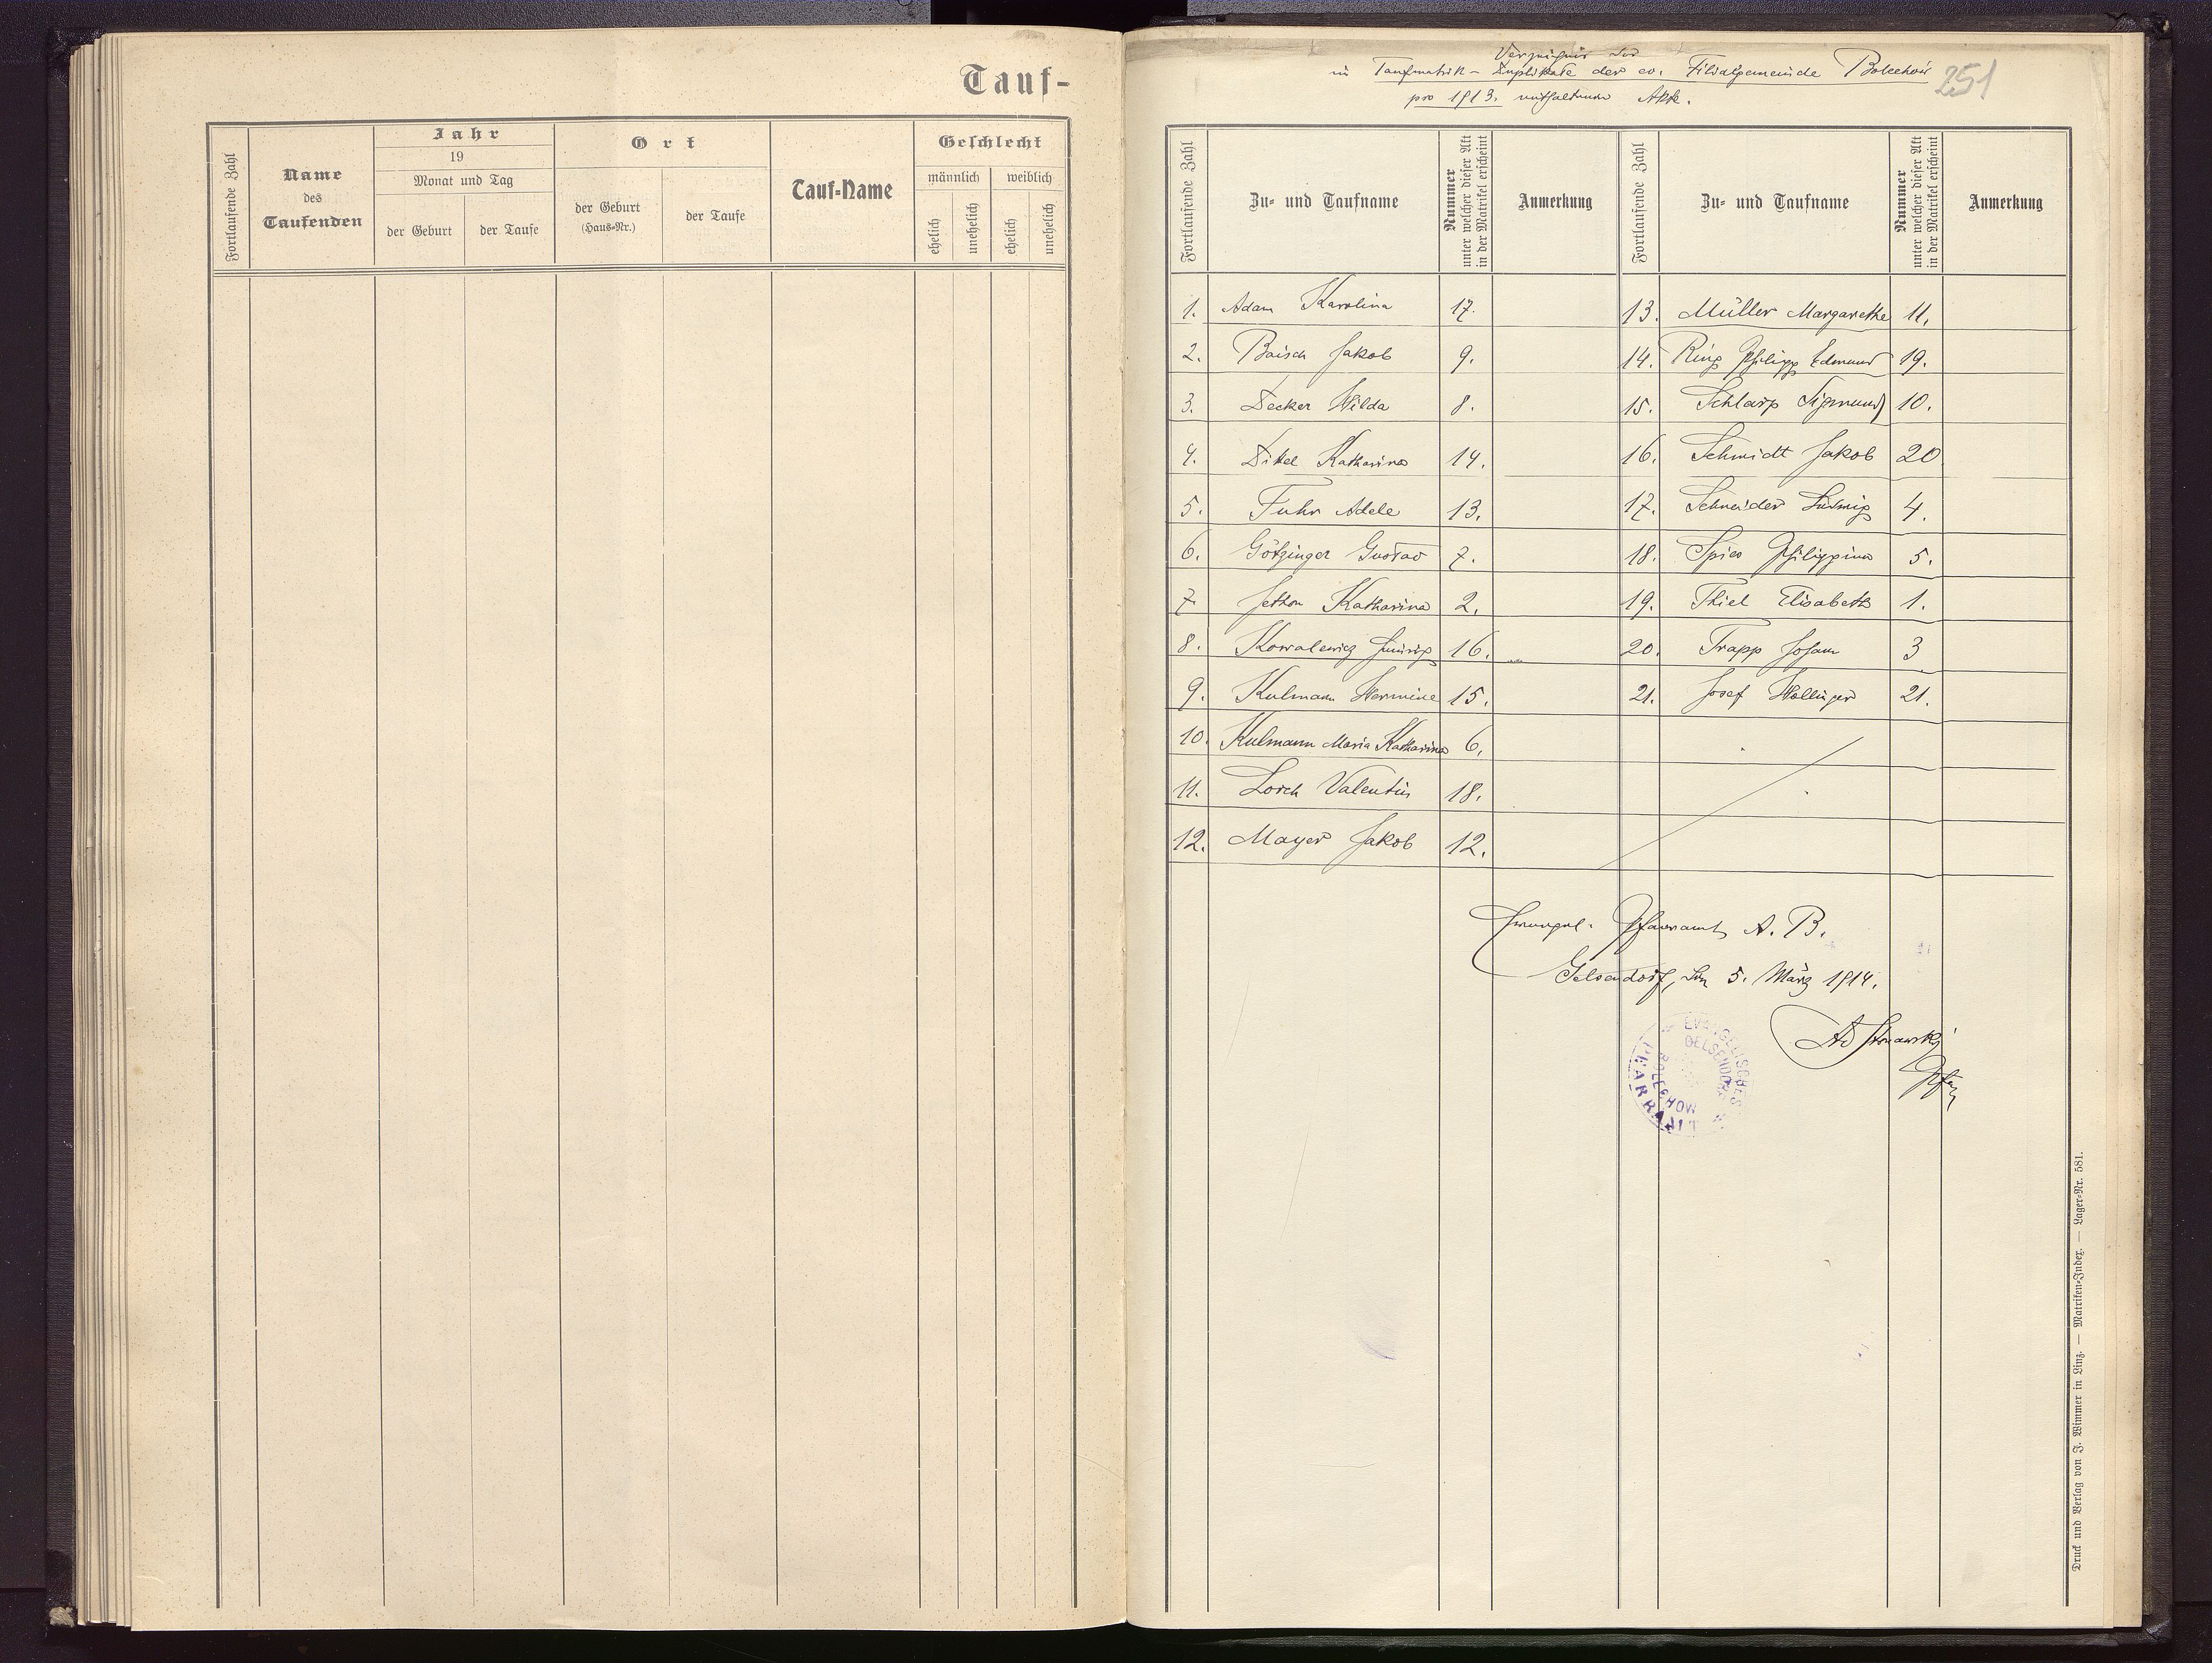 Tauf-
Fortlaufende Zahl
Name
des
Taufenden
Jahr
19
Monat und Tag
der Geburt
der Taufe
Ort
der Geburt
(Haus-Nr.)
der Taufe
Tauf-Name
Geschlecht
männlich
weiblich
ehelich
unehelich
ehelich
unehelich
Verzeichnis der
in Taufmatrik-Duplikate der ev. Filialgemeinde Bolechów
pro 1913. enthaltenen Akte.
251
Fortlaufende Zahl
Zu- und Taufname
Nummer
unter welcher dieser Akt
in der Matrikel erscheint
Anmerkung
Fortlaufende Zahl
Zu- und Taufname
Nummer
unter welcher dieser Akt
in der Matrikel erscheint
Anmerkung
1. Adam Karolina 17.
2. Baisch Jakob 9.
3. Decker Hilda 8.
4. Dikel Katharina 14.
5. Fuhr Adele 13.
6. Götzinger Gustav 7.
7. Jethon Katharina 2.
8. Kowalewicz 16.
9. Kulmann Hermine 15.
10. Kulmann Maria Katharina 6.
11. Lorch Valentin 18.
12. Mayer Jakob 12.
13. Müller Margarethe 11.
14. Ring Philipp Edmund 19.
15. Schlarp Sigmund 10.
16. Schmidt Jakob 20
17. Schneider Ludwig 4.
18. Spies Philippina 5.
19. Thiel Elisabeth 1.
20. Trapp Johann 3
21. Josef Hollinger 21.
Evangel. Pfarramt A. B.
Gelsendorf, den 5. März 1914.
EVANGELISCHES
PFARRAMT
GELSENDORF
BOLECHOW
Druck und Verlag von J. Wimmer in Linz. — Matriken-Index. — Lager-Nr. 581.